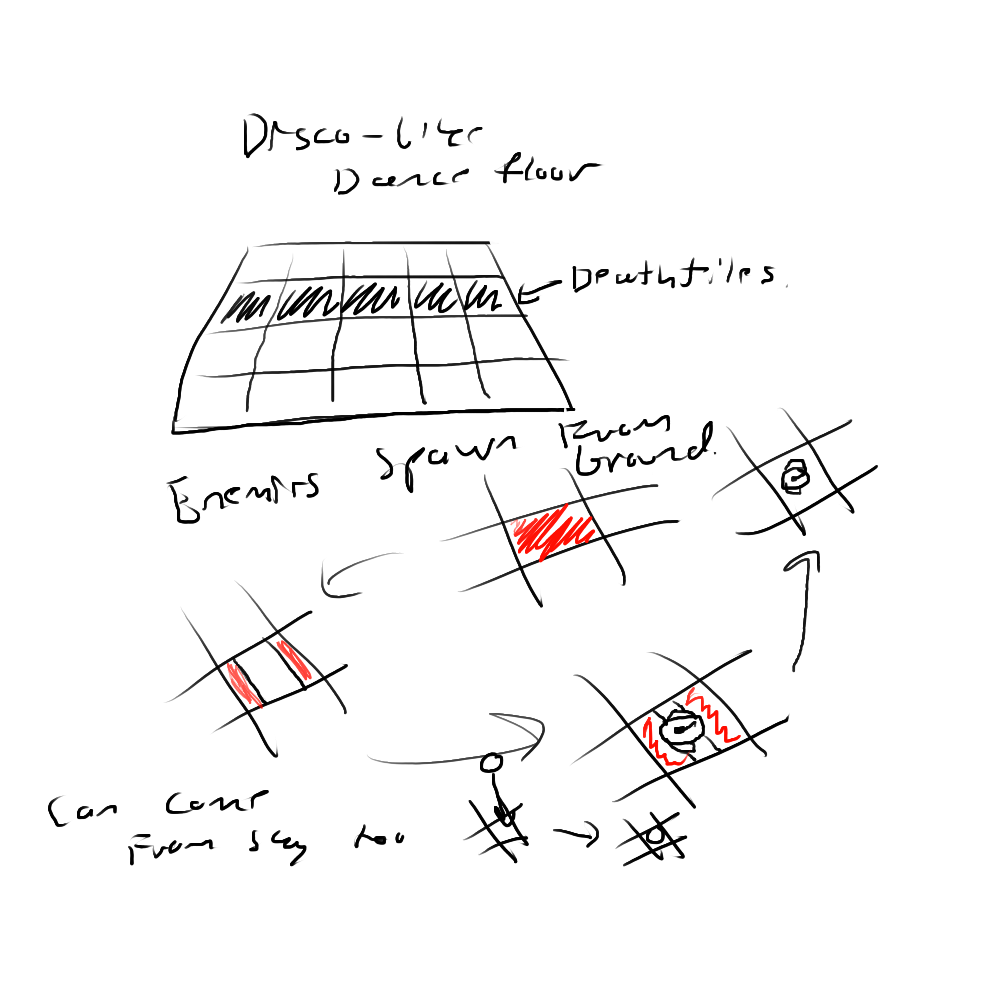 Disco-like
Dance floor
Death tiles
Enemies spawn From
Ground.
Can come
From sky too